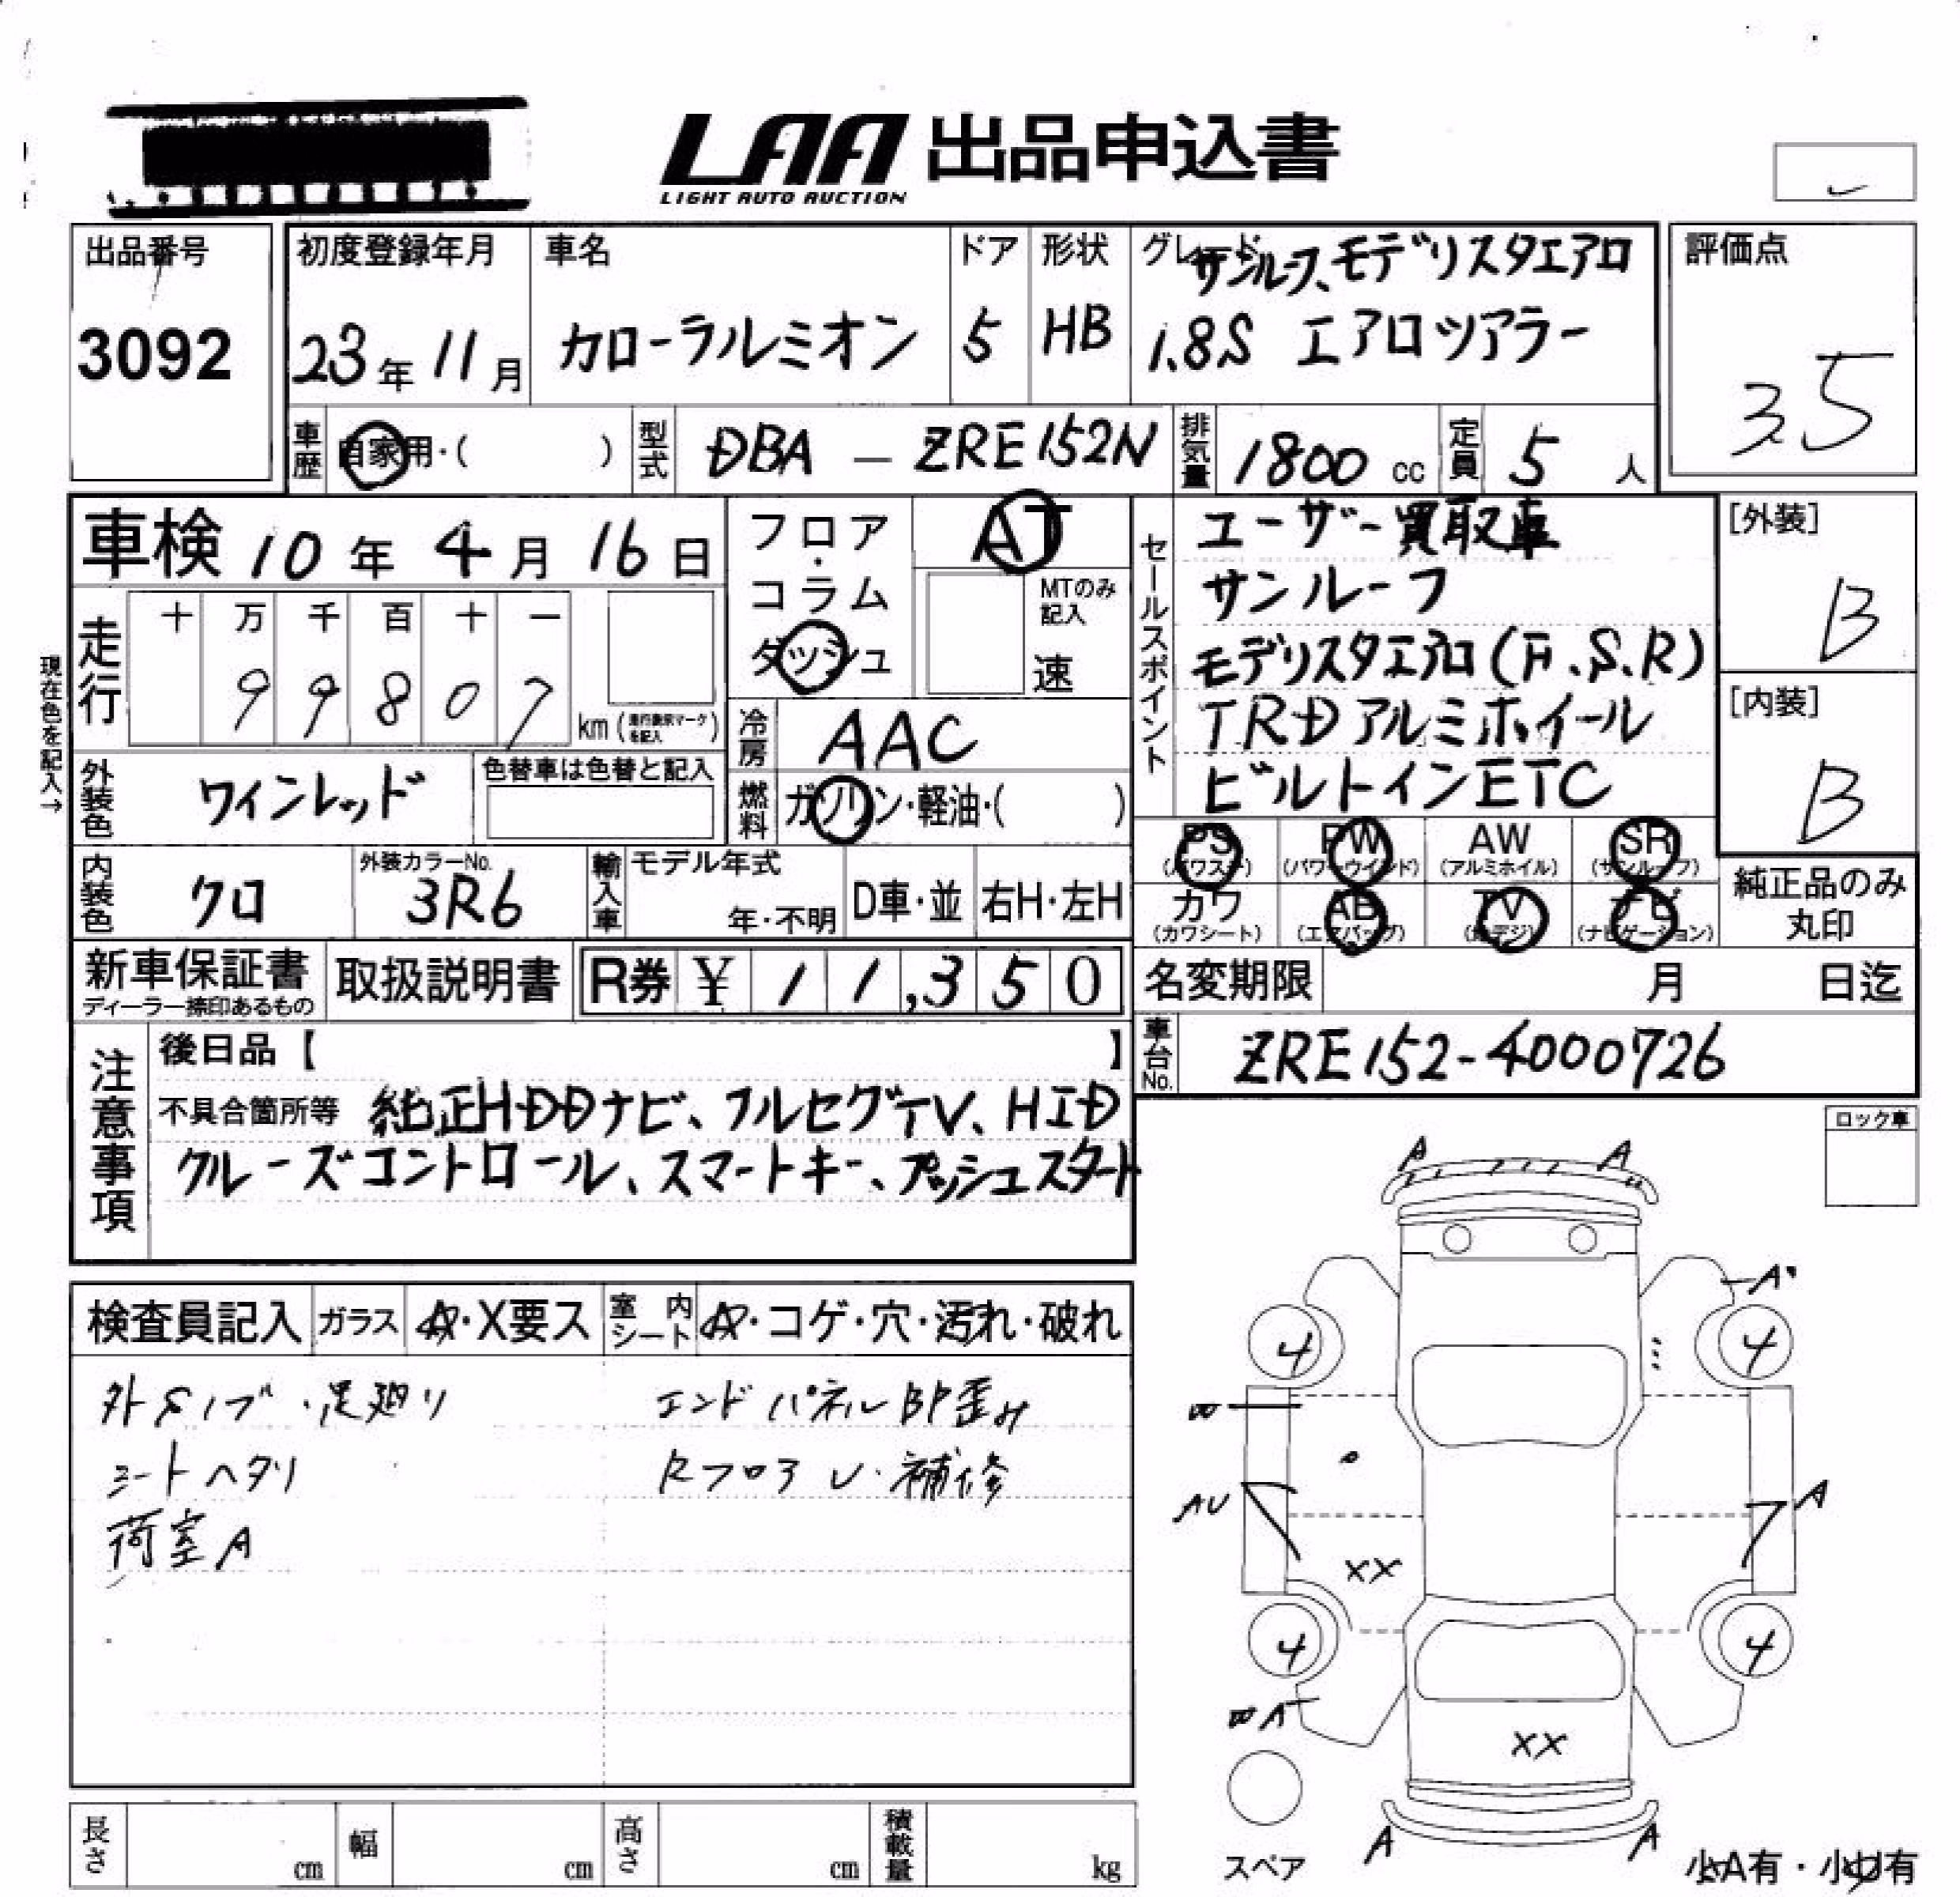 LAA 出品申込書
LIGHT AUTO AUCTION
出品番号
3092
初度登録年月
23年 11月
車名
カローラルミオン
ドア
5
形状
HB
グレード
サンルーフ、モデリスタエアロ
1.8S エアロツアラー
評価点
3.5
車歴 自家用・( )
型式 DBA - ZRE152N
排気量 1800 cc
定員 5 人
車検 10年 4月 16日
フロア・コラム
ダッシュ
AT
MTのみ記入
速
セールスポイント
ユーザー買取車
サンルーフ
モデリスタエアロ(F.S.R)
TRDアルミホイール
ビルトインETC
[外装]
B
[内装]
B
現在色を記入→
走行
十 万 千 百 十 一
9 9 8 0 7
km (走行表示マークを記入)
冷房 AAC
外装色 ワインレッド
色替車は色替と記入
燃料 ガソリン・軽油・( )
PS (パワステ)
PW (パワーウインド)
AW (アルミホイル)
SR (サンルーフ)
カワ (カワシート)
AB (エアバッグ)
TV (地デジ)
ナビ (ナビゲーション)
純正品のみ
丸印
内装色 クロ
外装カラーNo. 3R6
輸入車
モデル年式
年・不明
D車・並
右H・左H
新車保証書
ディーラー捺印あるもの
取扱説明書
R券 ¥ 11,350
名変期限 月 日迄
車台No. ZRE152-4000726
注意事項
後日品【 】
不具合箇所等 純正HDDナビ、フルセグTV、HID
クルーズコントロール、スマートキー、プッシュスタート
ロック車
検査員記入
ガラス A・X要ス
室内シート A・コゲ・穴・汚れ・破れ
足廻り
シートヘタリ
荷室A
エンドパネルBP歪み
Rフロア レ・補修
A A
A
4 4
AU A
XX
4 4
A
XX
A A
スペア
小A有・小U有
長さ cm
幅 cm
高さ cm
積載量 kg